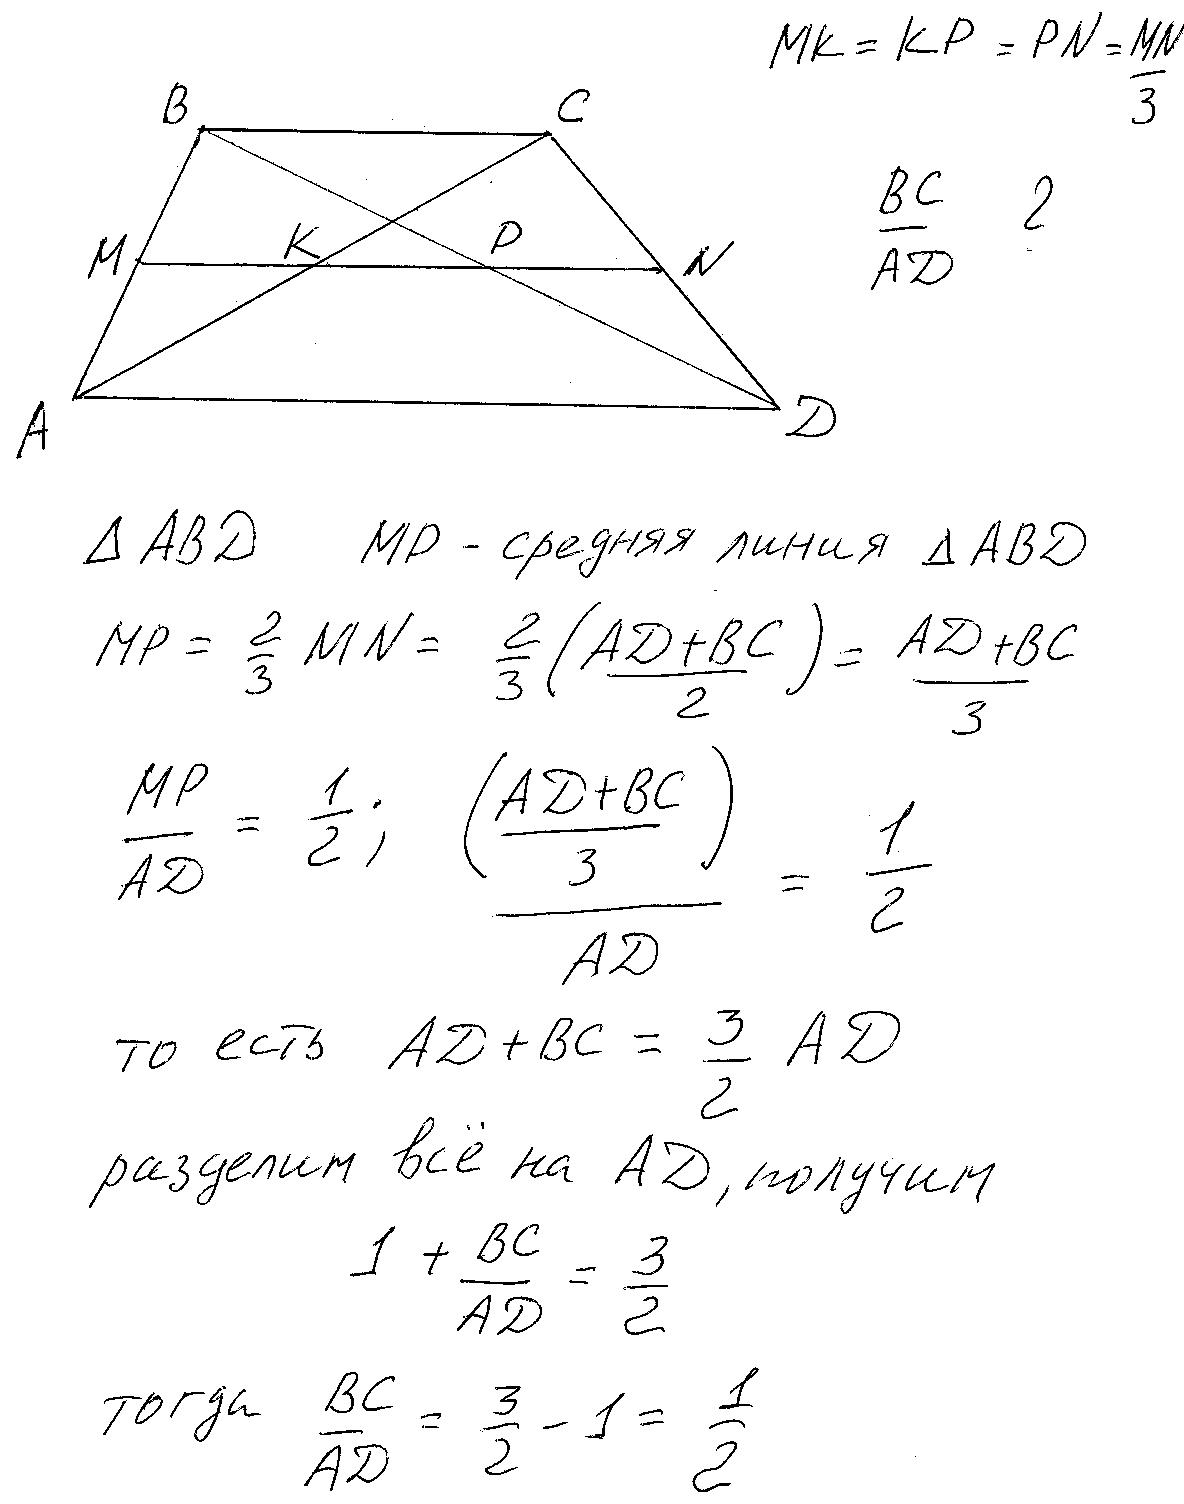 MK = KP = PN = MN/3
B C
BC/AD ?
M K P N
A D
Δ ABD MP - средняя линия Δ ABD
MP = 2/3 MN = 2/3 (AD+BC/2) = AD+BC/3
MP/AD = 1/2; (AD+BC/3)/AD = 1/2
то есть AD + BC = 3/2 AD
разделим всё на AD, получим
1 + BC/AD = 3/2
тогда BC/AD = 3/2 - 1 = 1/2